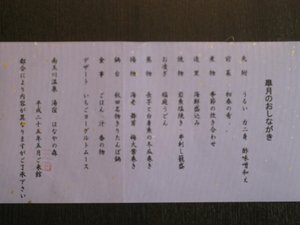 皐月のおしながき
先附 うるい カニ身 酢味噌和え
前菜 初春の肴
煮物 季節の炊き合わせ
造里 海鮮盛込み
焼物 岩魚塩焼き 串刺し籠盛
お凌ぎ 稲庭うどん
蒸物 長芋と白身魚の冬瓜巻き
揚物 海老 舞茸 梅大葉巻き
鍋台 秋田名物きりたんぽ鍋
食事 ごはん 汁 香の物
デザート いちごヨーグルトムース
平成二十五年五月ご来館
南玉川温泉 湯宿 はなやの森
都合により内容が異なりますがご了承下さい